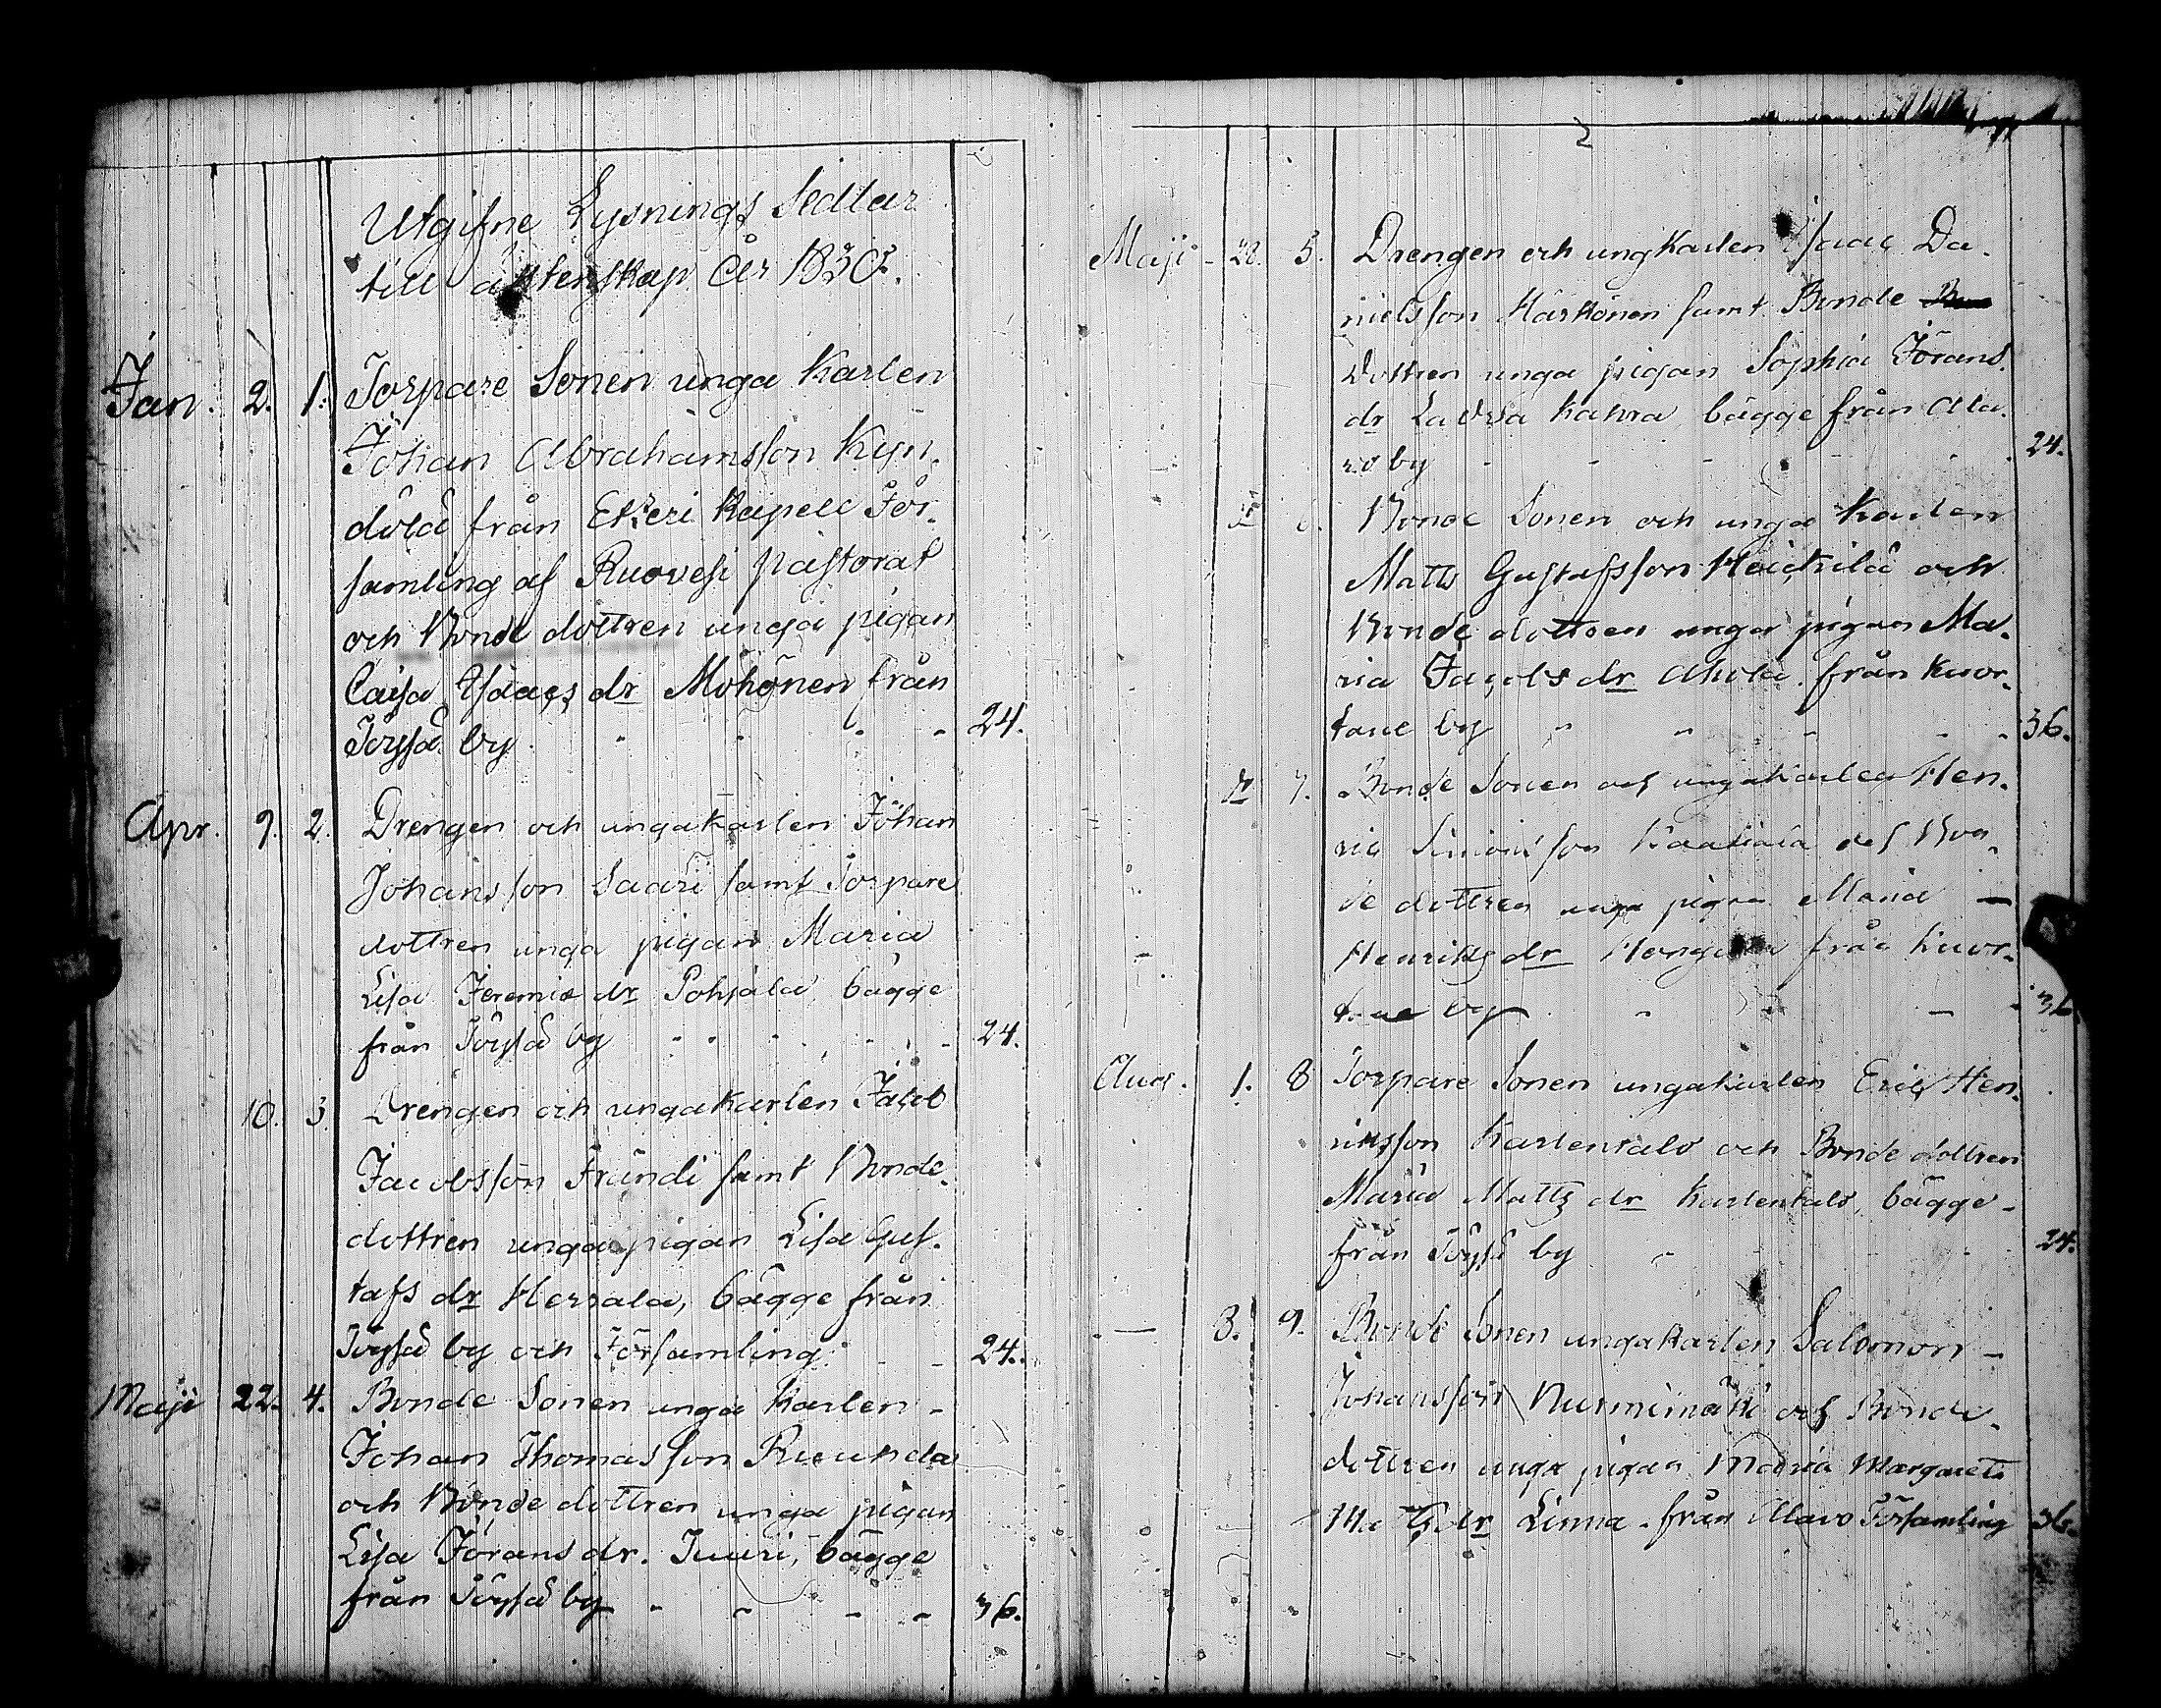 Utgifne Lysnings Sedlar
till äktenskap År 1830.
Jan. 2. 1. Torpare Sonen unga Karlen
Johan Abrahamsson Kyn-
dölä från Etzeri Kapell För-
samling af Ruovesi pastorat
och Bonde dottren unga pigan
Caisa Isaacs dr Möhönen från
Töysä by - - - - 24.
Apr. 9. 2. Drengen och ungakarlen Johan
Johansson Saari samt Torpare
dottren unga pigan Maria
Lisa Jeremiæ dr Pohjala bägge
från Töysä by - - - - 24.
10. 3. Drengen och ungakarlen Jacob
Jacobsson Frändi samt Bonde
dottren unga pigan Lisa Gus-
tafs dr Herrala, bägge från
Töysä by och Församling - - 24.
Maji 22. 4. Bonde Sonen unga Karlen -
Johan Thomasson Ruuhela
och Bonde dottren unga pigan
Lisa Jörans dr. Juuri, bägge
från Töysä by - - - - 36.
2
Maji - 28. 5. Drengen och ungkarlen Isaac Da-
nielsson Härkönen samt Bonde
dottren unga pigan Sophia Jörans
dr bägge från Ala-
vo by - - - - 24.
6. Bonde Sonen och unga Karlen
Matts Gustafsson Heickilä och
Bonde dottren unga pigan Ma-
ria Jacobs dr Ahola från Kuor-
tane by - - - - 36.
7. Bonde Sonen och ungakarlen Hen-
ric Simonsson Kaatiala och Bon-
de dottren unga pigan Maria -
Henriks dr från Kuor-
tane by - - - 36
Aug. 1. 8 Torpare Sonen ungakarlen Eric Hen-
riksson Karlentalo och Bonde dottren
Maria Matts dr Karlentalo, bägge -
från Töysä by - - - 24.
- 8. 9. Bonde Sonen ungakarlen Salomon -
Johansson Nurmimäki och Bonde
dottren unga pigan Maria Margareta
Matts dr Linna från Alavo Församling 36.